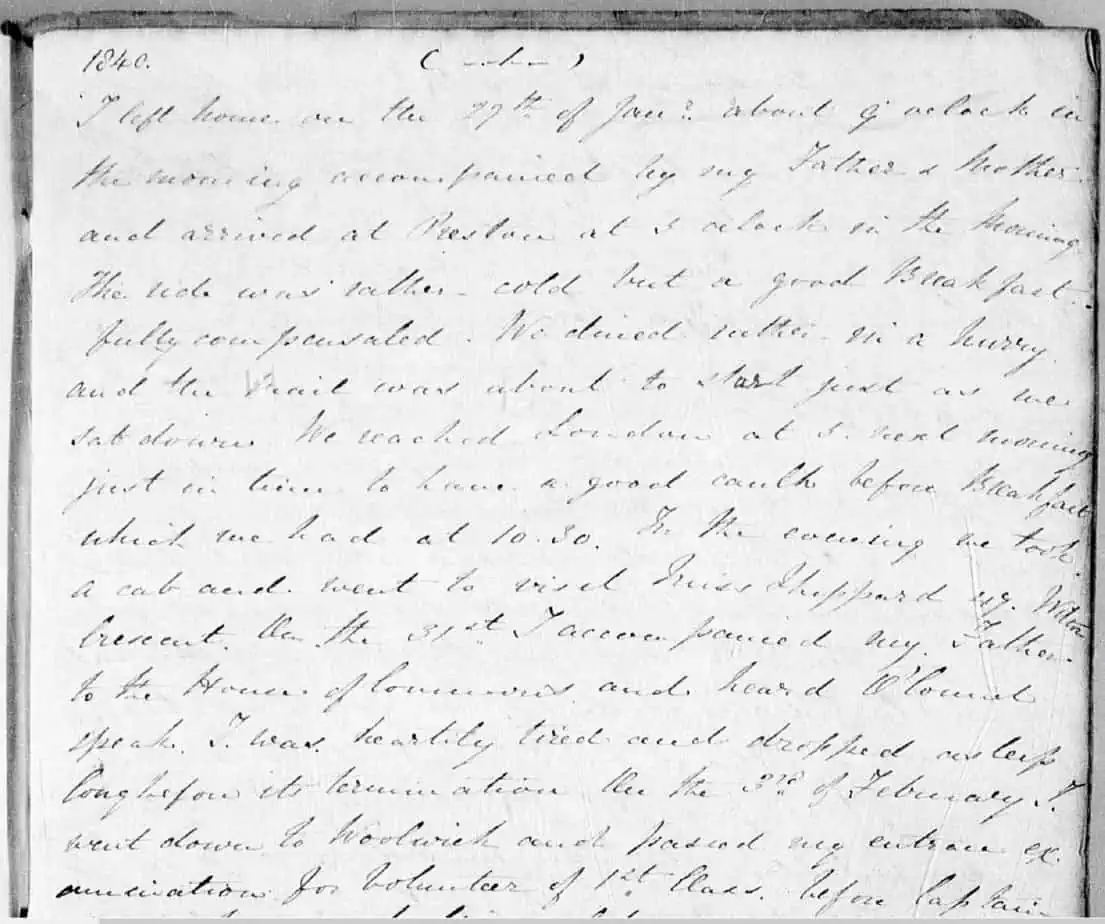 1840.
I left home on the 29th of Jany. about 9 oclock in
the morning accompanied by my Father & Mother
and arrived at Preston at 3 oclock in the Morning
The ride was rather cold but a good Breakfast
fully compensated. We dined rather in a hurry
and the mail was about to start just as we
sat down We reached London at 5. next morning
just in time to have a good before Breakfast
which we had at 10.30. In the evening we took
a cab and went to visit Miss Sheppard Wilton
Crescent. On the 31st I accompanied my Father
to the House of Commons and heard O'Connel
speak. I was heartily tired and dropped asleep
long before its termination On the 3rd of February I
went down to Woolwich and passed my entrance ex.
amination for Volunteer of 1st Class. before Captain